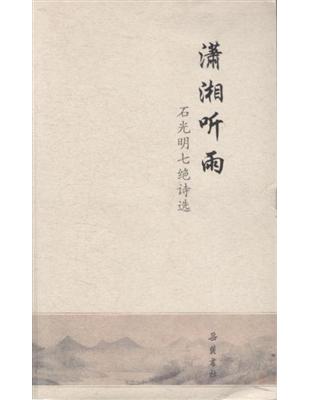 潇湘听雨
石光明七绝诗选
岳麓书社